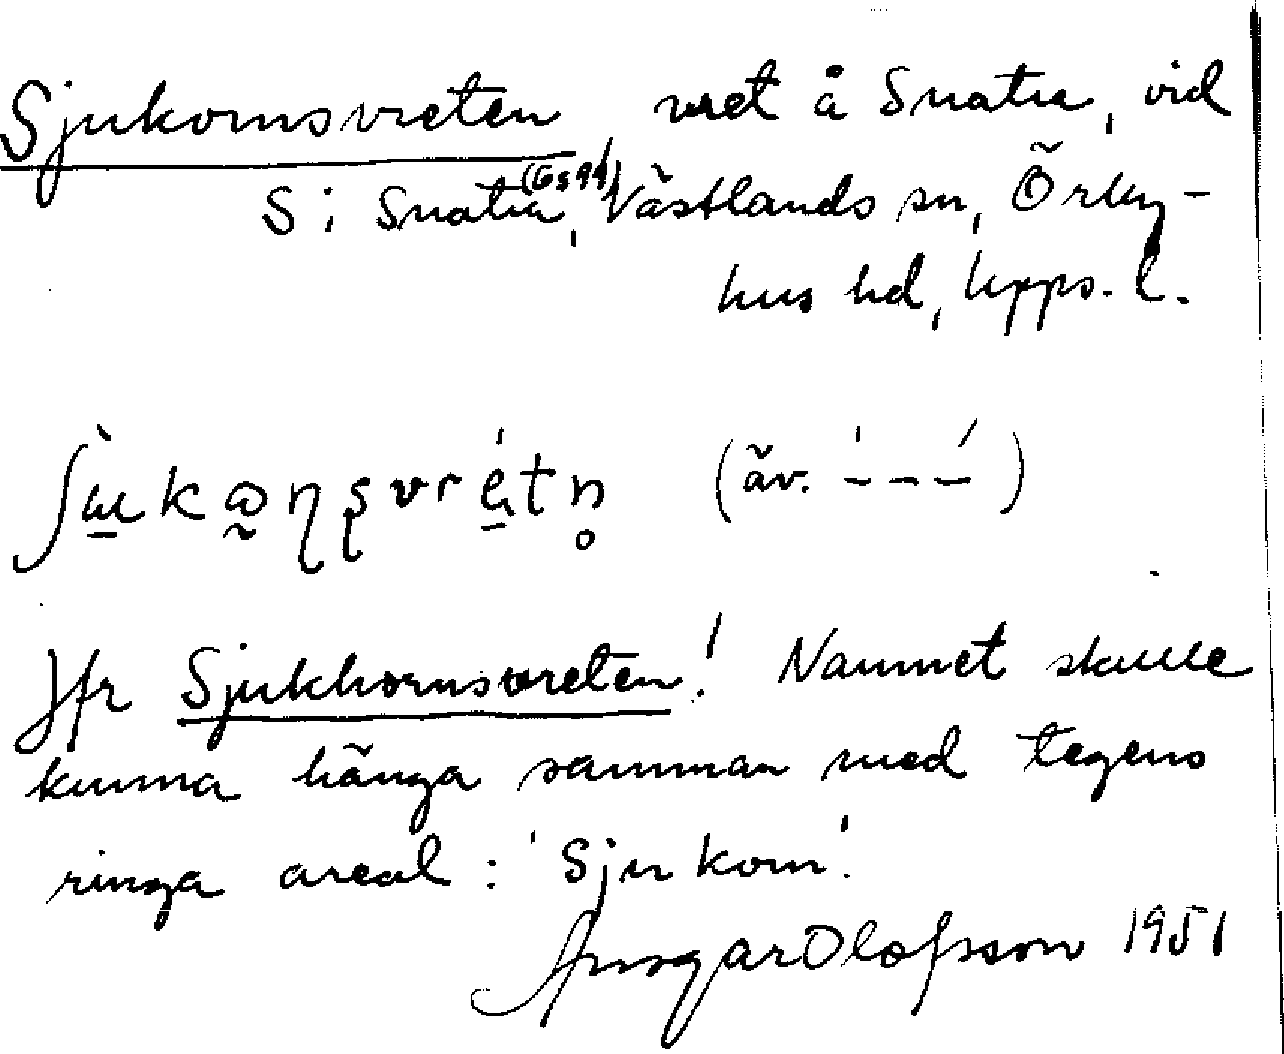 Sjukornsvreten, vret å Snatra, vid
S i Snatra (Gs 99), Västlands sn, Örby-
hus hd, Upps. l.
(äv. ˈ – – – ́)
Jfr Sjukhornsvreten! Namnet skulle
kunna hänga samman med tegens
ringa areal: 'Sju korn'.
Ansgar Olofsson 1951